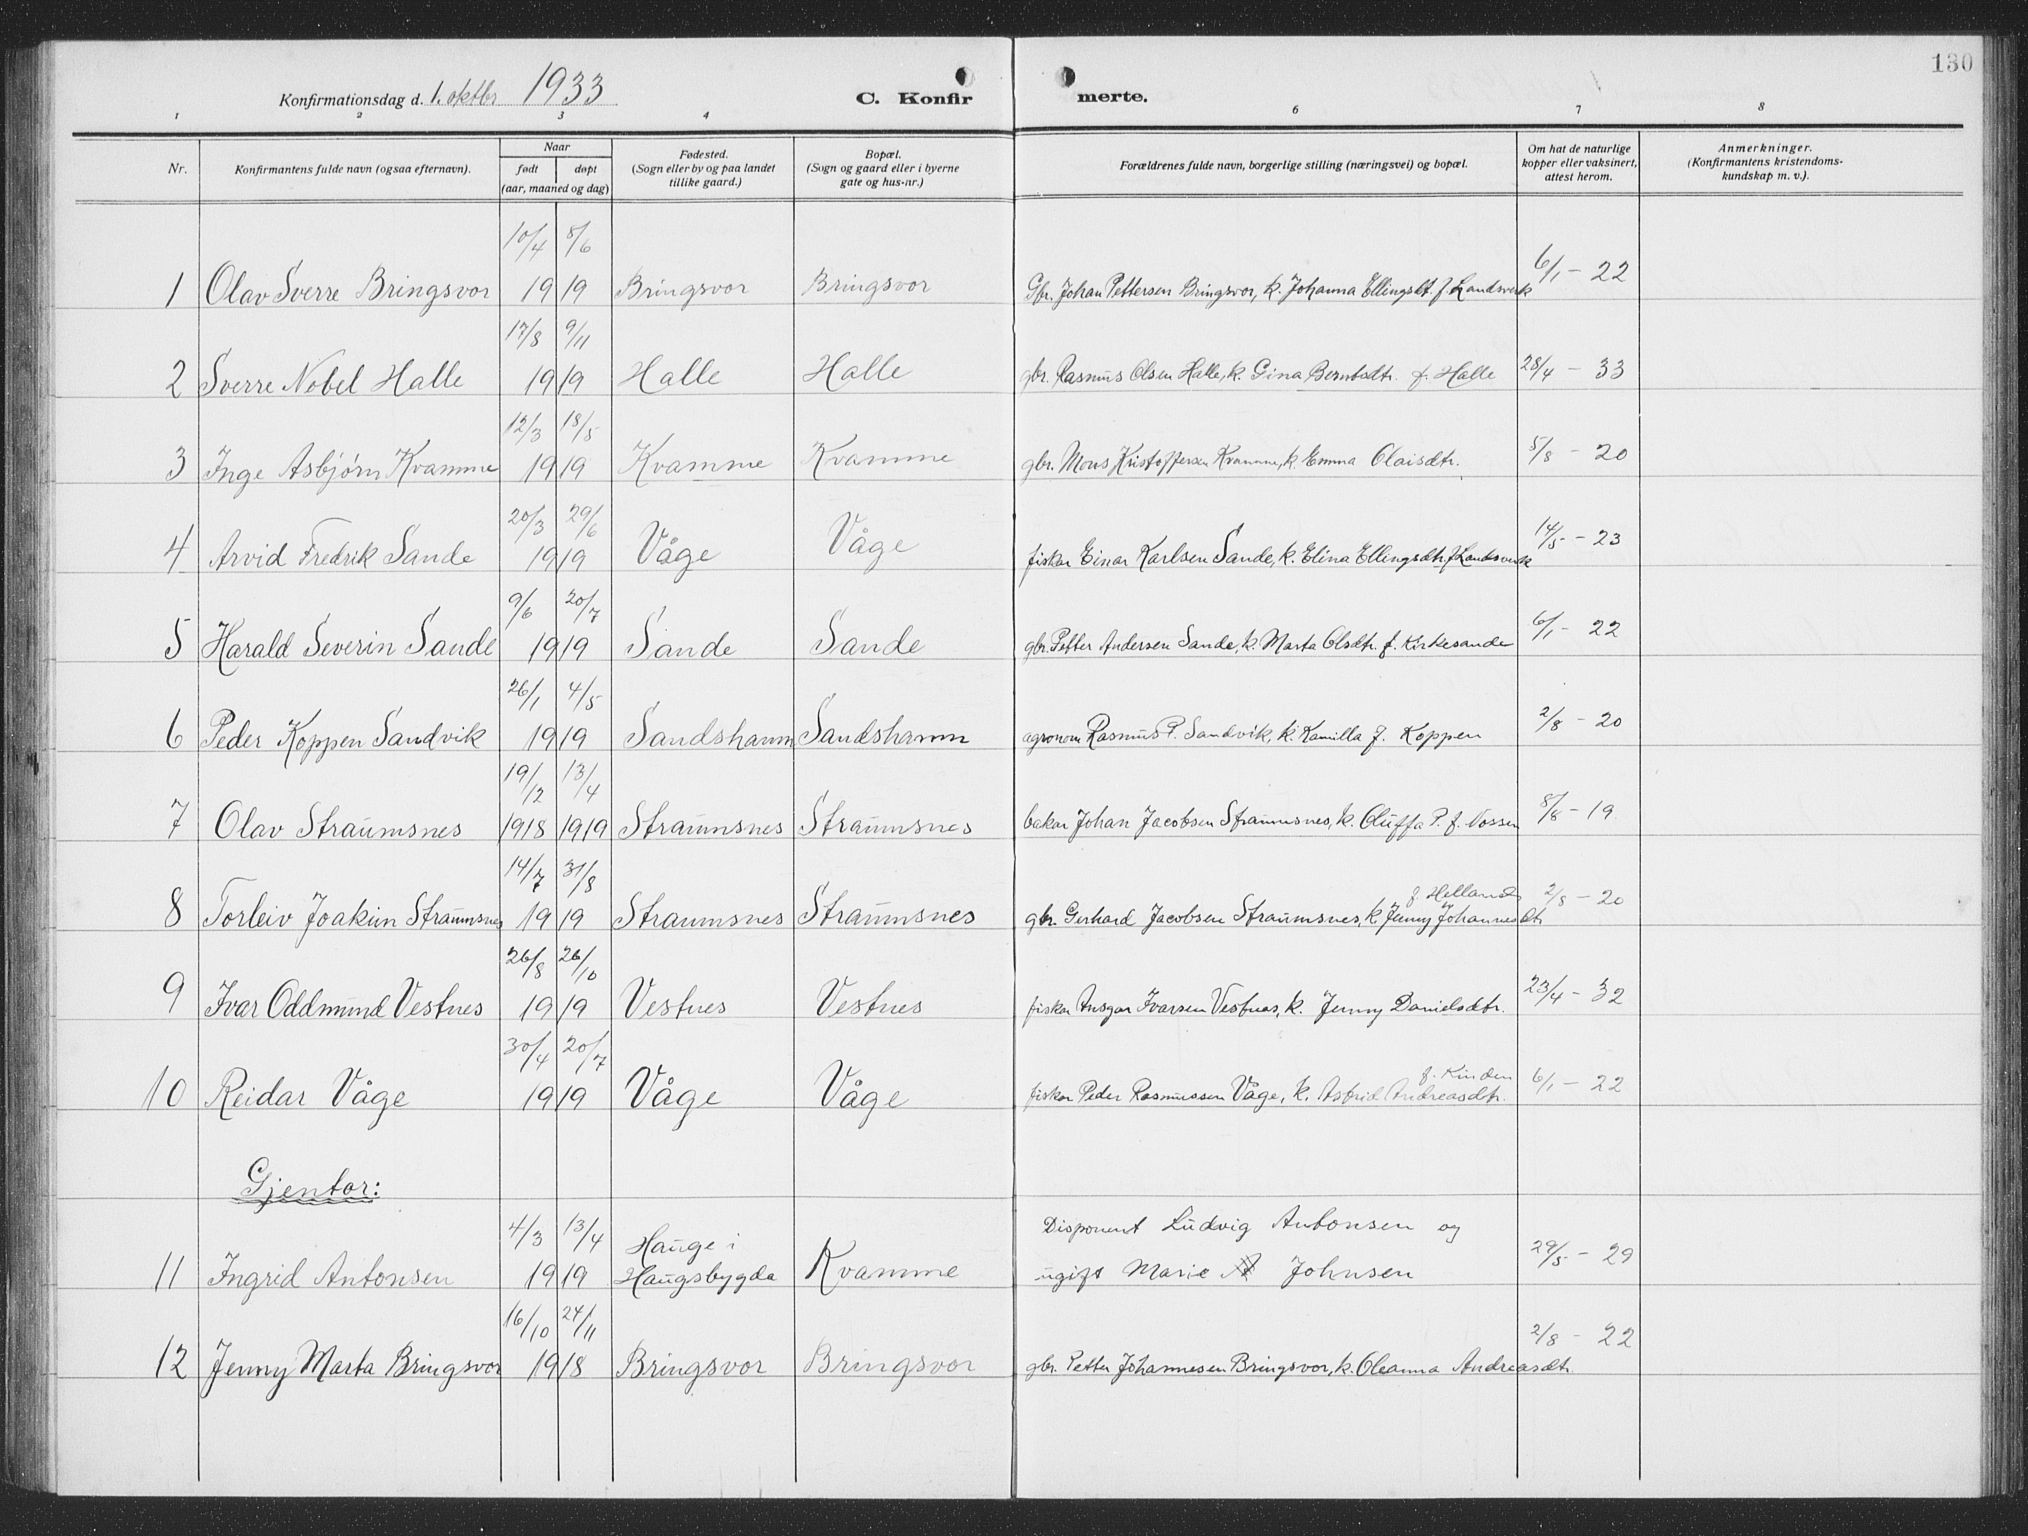 130
Konfirmationsdag d. 1. oktbr 1933 C. Konfir merte.
1 2 3 4 5 6 7 8
Nr. Konfirmantens fulde navn (ogsaa efternavn). Naar født døpt (aar, maaned og dag) Fødested. (Sogn eller by og paa landet tillike gaard.) Bopæl. (Sogn og gaard eller i byerne gate og hus-nr.) Forældrenes fulde navn, borgerlige stilling (næringsvei) og bopæl. Om hat de naturlige kopper eller vaksinert, attest herom. Anmerkninger. (Konfirmantens kristendomskundskap m. v.).
10/4 8/6
1 Olav Sverre Bringsvor 1919 Bringsvor Bringsvor Gbr. Johan Pettersen Bringsvor, k. Johanna Ellingsdt. f. Landsverk 6/1 - 22
17/8 9/11
2 Sverre Nobel Halle 1919 Halle Halle gbr. Rasmus Olsen Halle, k. Gina Berntsdtr. f. Halle 28/4 - 33
12/3 18/5
3 Inge Asbjørn Kvamme 1919 Kvamme Kvamme gbr. Mons Kristoffersen Kvamme, k. Emma Olaisdtr. 5/8 - 20
20/3 29/6
4 Arvid Fredrik Sande 1919 Våge Våge fiskar Einar Karlsen Sande, k. Elina Ellingsdtr. f. Landsverk 14/5 - 23
9/6 20/7
5 Harald Severin Sande 1919 Sande Sande gbr. Petter Andersen Sande, k. Marta Olsdtr. f. Kirkesande 6/1 - 22
26/1 4/5
6 Peder Koppen Sandvik 1919 Sandshamn Sandshamn agronom Rasmus P. Sandvik, k. Kamilla f. Koppen 2/8 - 20
19/12 13/4
7 Olav Straumsnes 1918 1919 Straumsnes Straumsnes bakar Johan Jacobsen Straumsnes, k. Oluffa P. f. Vossen 8/8 - 19
14/7 31/8 f. Helland
8 Torleiv Joakim Straumsnes 1919 Straumsnes Straumsnes gbr. Gerhard Jacobsen Straumsnes, k. Jenny Johannesdtr 2/8 - 20
26/8 26/10
9 Ivar Oddmund Vestnes 1919 Vestnes Vestnes fiskar Ansgar Ivarsen Vestnes, k. Jenny Danielsdtr. 23/4 - 32
30/4 20/7 f. Kinden
10 Reidar Våge 1919 Våge Våge fiskar Peder Rasmussen Våge, k. Astrid Andreasdtr. 6/1 - 22
Gjentor:
4/3 13/4 Hauge i Disponent Ludvig Antonsen og
11 Ingrid Antonsen 1919 Haugsbygda Kvamme ugift Marie Johnsen 29/5 - 29
16/10 24/11
12 Jenny Marta Bringsvor 1918 Bringsvor Bringsvor gbr. Petter Johannesen Bringsvor, k. Oleanna Andreasdtr. 2/8 - 22